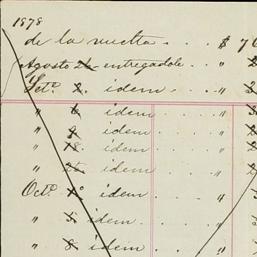 1878
de la vuelta . . . $ 76
Agosto 26 entregadole . . "
Set.e 2. idem . . . . "
" 6 idem . . . . "
" 9 idem . . . . "
" 18 idem . . . . "
" 25 idem . . . . "
Oct.e 1.o idem . . . "
" 5 idem . . . . "
" 8 idem . . . . "